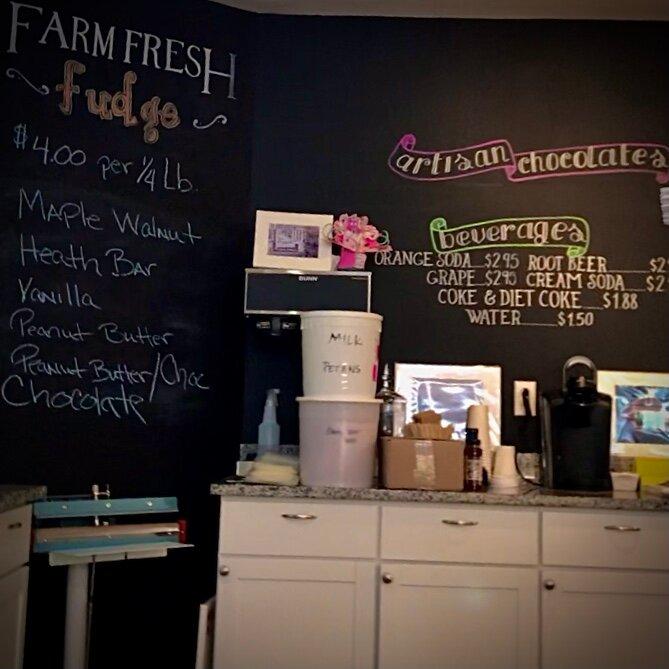 FARM FRESH
fudge
$4.00 per 1/4 Lb.
Maple Walnut
Heath Bar
Vanilla
Peanut Butter
Peanut Butter/Choc
Chocolate
artisan chocolates
beverages
ORANGE SODA...$2.95 ROOT BEER......$2
GRAPE...$2.95 CREAM SODA....$2
COKE & DIET COKE....$1.88
WATER........$1.50
BUNN
MILK
PETENS